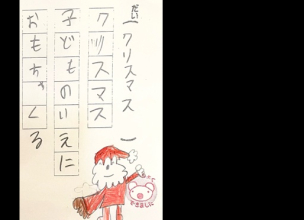 だい（クリスマス）
クリスマス
子どものいえに
おもちゃくる